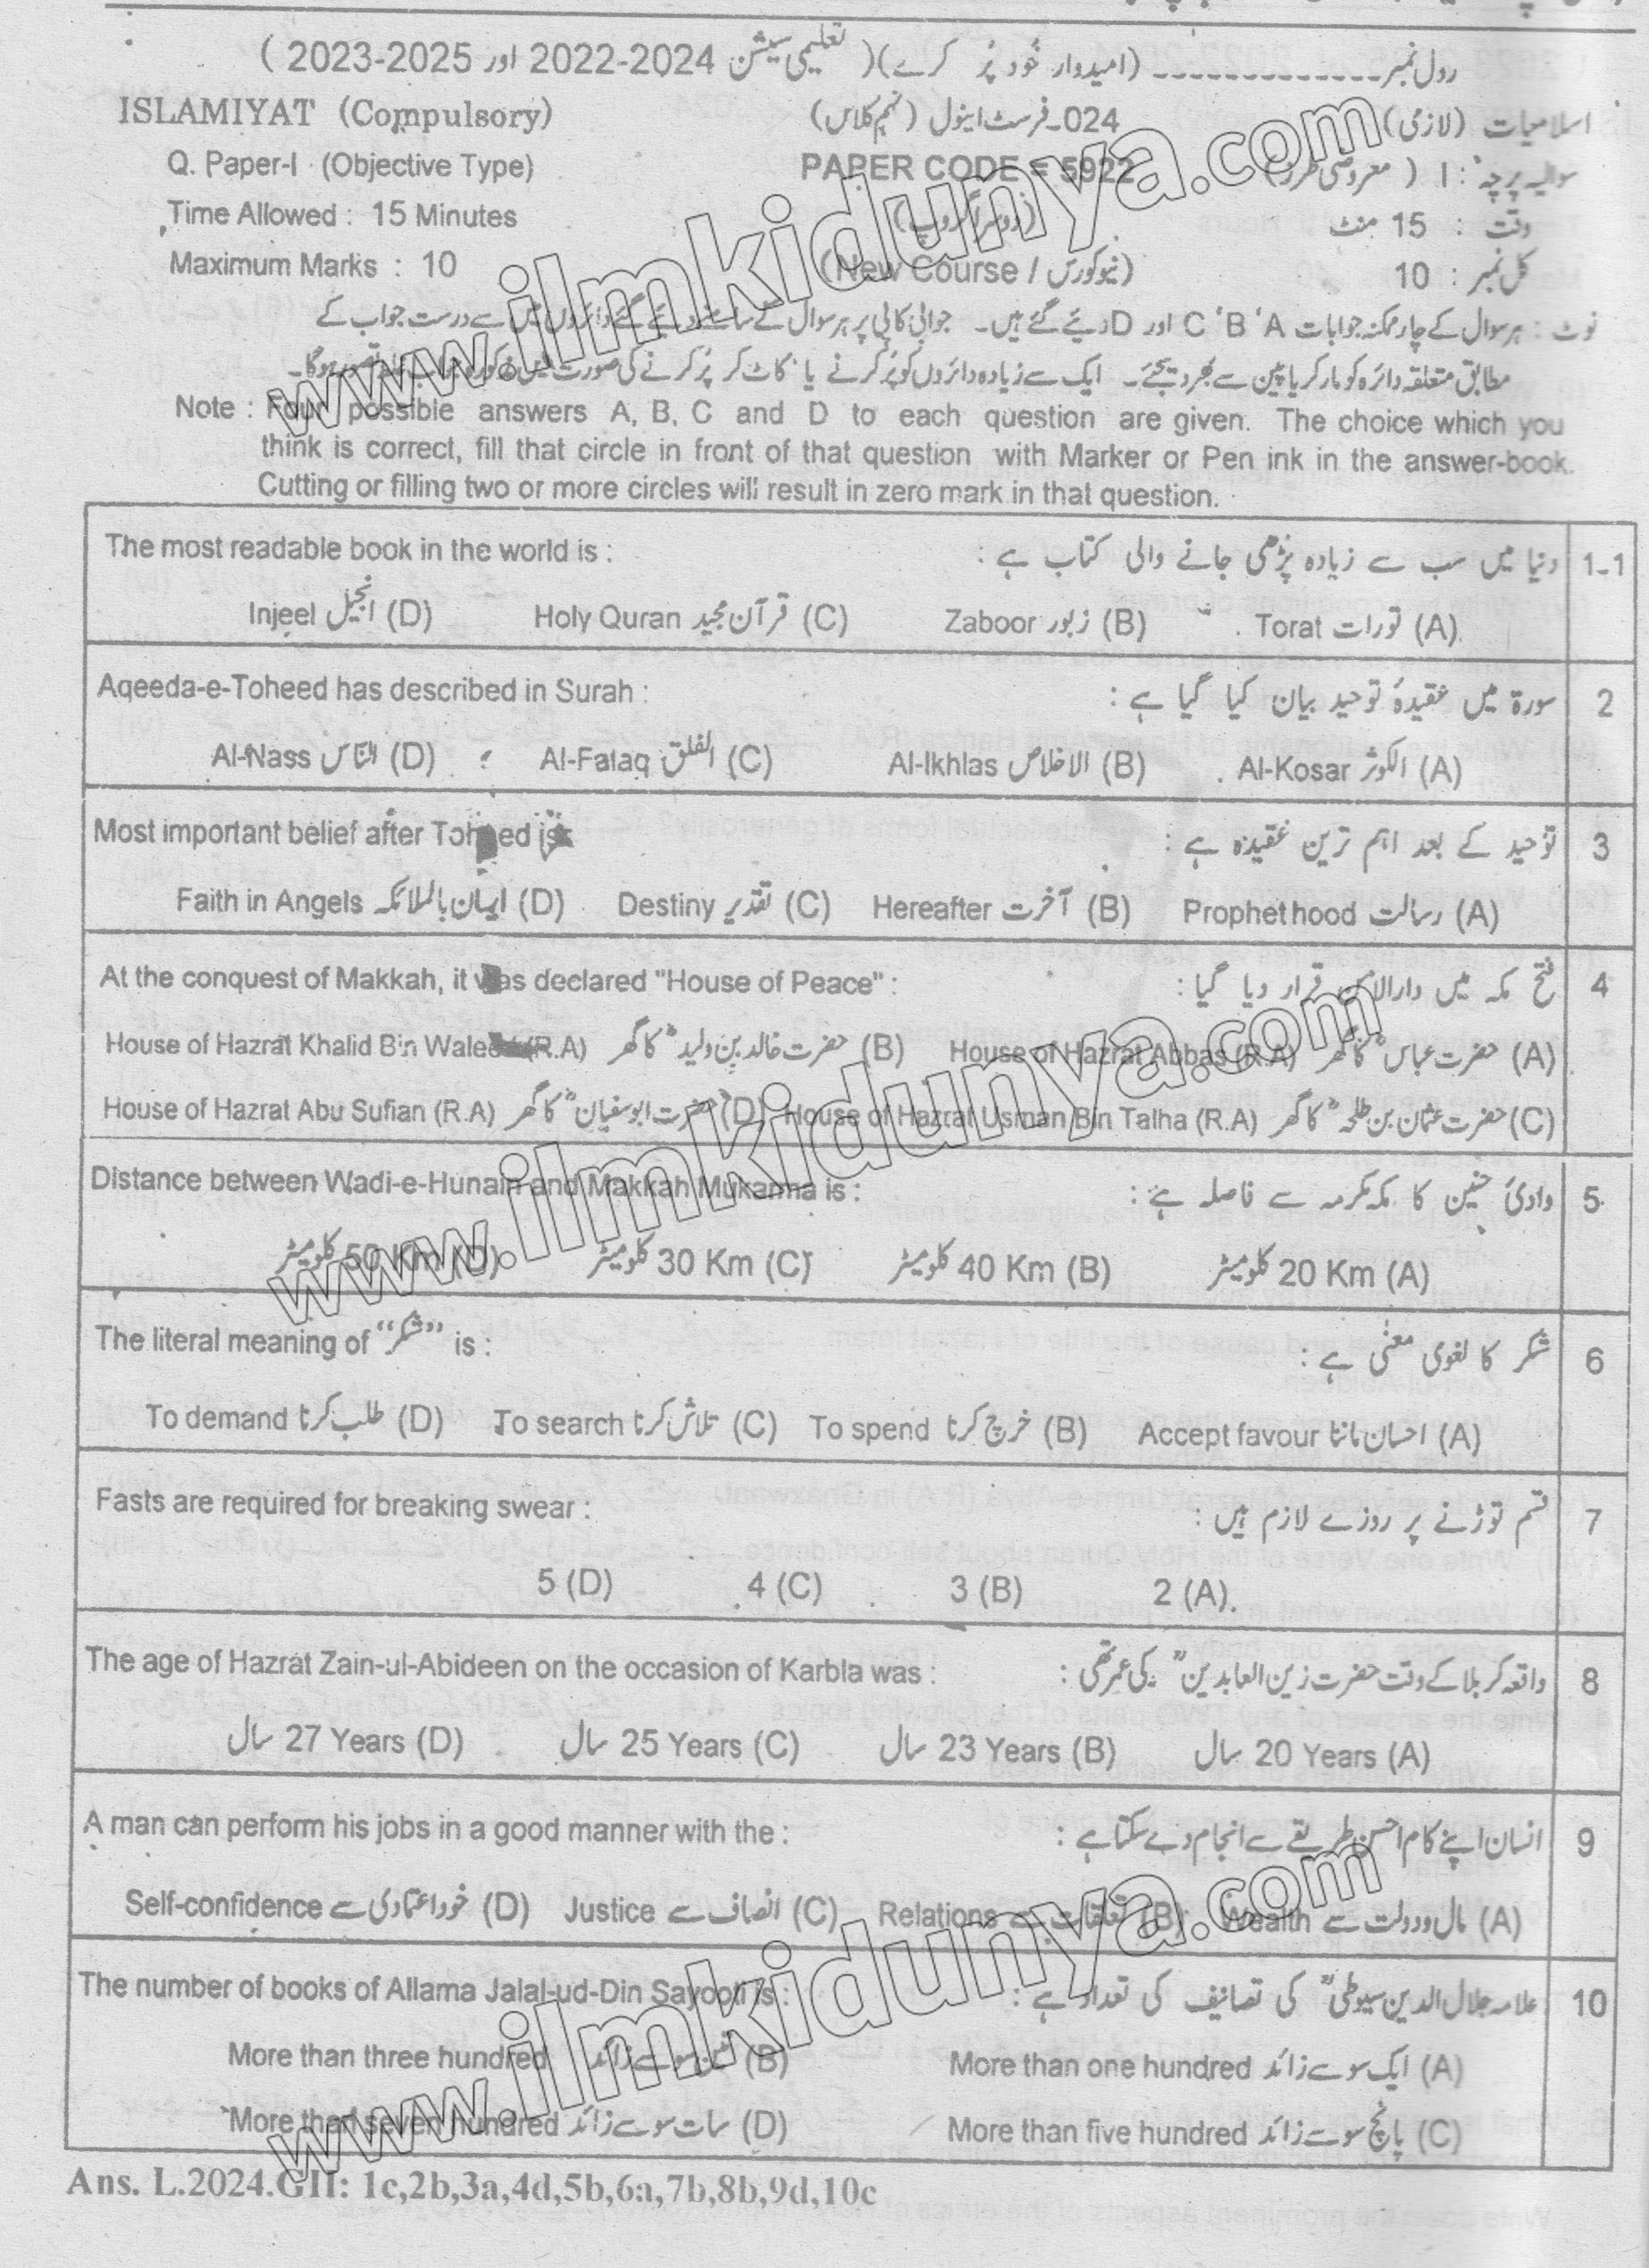 رول نمبر ------------- (امیدوار خود پُر کرے) ( تعلیمی سیشن 2024-2022 اور 2025-2023 )
ISLAMIYAT (Compulsory) 024-فرسٹ اینول (نہم کلاس) اسلامیات (لازمی)
Q. Paper-I (Objective Type) PAPER CODE = 5922 سوالیہ پرچہ : I ( معروضی طرز )
Time Allowed : 15 Minutes (دوسرا گروپ) وقت : 15 منٹ
Maximum Marks : 10 (New Course / نیو کورس) کل نمبر : 10
نوٹ : ہر سوال کے چار ممکنہ جوابات A ' B ' C اور D دیئے گئے ہیں۔ جوابی کاپی پر ہر سوال کے سامنے دیئے گئے دائروں میں سے درست جواب کے
مطابق متعلقہ دائرہ کو مارکر یا پین سے بھر دیجئے۔ ایک سے زیادہ دائروں کو پُر کرنے یا کاٹ کر پُر کرنے کی صورت میں مذکورہ جواب غلط تصور ہوگا۔
Note : Four possible answers A, B, C and D to each question are given. The choice which you
think is correct, fill that circle in front of that question with Marker or Pen ink in the answer-book.
Cutting or filling two or more circles will result in zero mark in that question.
The most readable book in the world is : دنیا میں سب سے زیادہ پڑھی جانے والی کتاب ہے : 1-1
Injeel انجیل (D) Holy Quran قرآن مجید (C) Zaboor زبور (B) Torat تورات (A)
Aqeeda-e-Toheed has described in Surah : سورۃ میں عقیدۂ توحید بیان کیا گیا ہے : 2
Al-Nass النّاس (D) Al-Falaq الفلق (C) Al-Ikhlas الاخلاص (B) Al-Kosar الکوثر (A)
Most important belief after Toheed is توحید کے بعد اہم ترین عقیدہ ہے : 3
Faith in Angels ایمان بالملائکہ (D) Destiny تقدیر (C) Hereafter آخرت (B) Prophethood رسالت (A)
At the conquest of Makkah, it was declared "House of Peace" : فتح مکہ میں دارالامن قرار دیا گیا : 4
House of Hazrat Khalid Bin Waleed (R.A) حضرت خالد بن ولیدؓ کا گھر (B) House of Hazrat Abbas (R.A) حضرت عباسؓ کا گھر (A)
House of Hazrat Abu Sufian (R.A) حضرت ابوسفیانؓ کا گھر (D) House of Hazrat Usman Bin Talha (R.A) حضرت عثمان بن طلحہؓ کا گھر (C)
Distance between Wadi-e-Hunain and Makkah Mukarma is : وادیٔ حنین کا مکہ مکرمہ سے فاصلہ ہے : 5
50 Km کلومیٹر (D) 30 Km کلومیٹر (C) 40 Km کلومیٹر (B) 20 Km کلومیٹر (A)
The literal meaning of "شکر" is : شکر کا لغوی معنٰی ہے : 6
To demand طلب کرنا (D) To search تلاش کرنا (C) To spend خرچ کرنا (B) Accept favour احسان ماننا (A)
Fasts are required for breaking swear : قسم توڑنے پر روزے لازم ہیں : 7
5 (D) 4 (C) 3 (B) 2 (A)
The age of Hazrat Zain-ul-Abideen on the occasion of Karbla was : واقعہ کربلا کے وقت حضرت زین العابدینؒ کی عمر تھی : 8
27 Years سال (D) 25 Years سال (C) 23 Years سال (B) 20 Years سال (A)
A man can perform his jobs in a good manner with the : انسان اپنے کام احسن طریقے سے انجام دے سکتا ہے : 9
Self-confidence خود اعتمادی سے (D) Justice انصاف سے (C) Relations تعلقات سے (B) Wealth مال و دولت سے (A)
The number of books of Allama Jalal-ud-Din Sayooti is : علامہ جلال الدین سیوطیؒ کی تصانیف کی تعداد ہے : 10
More than three hundred تین سو سے زائد (B) More than one hundred ایک سو سے زائد (A)
More than seven hundred سات سو سے زائد (D) More than five hundred پانچ سو سے زائد (C)
Ans. L.2024.GII: 1c,2b,3a,4d,5b,6a,7b,8b,9d,10c
www.ilmkidunya.com
www.ilmkidunya.com
www.ilmkidunya.com